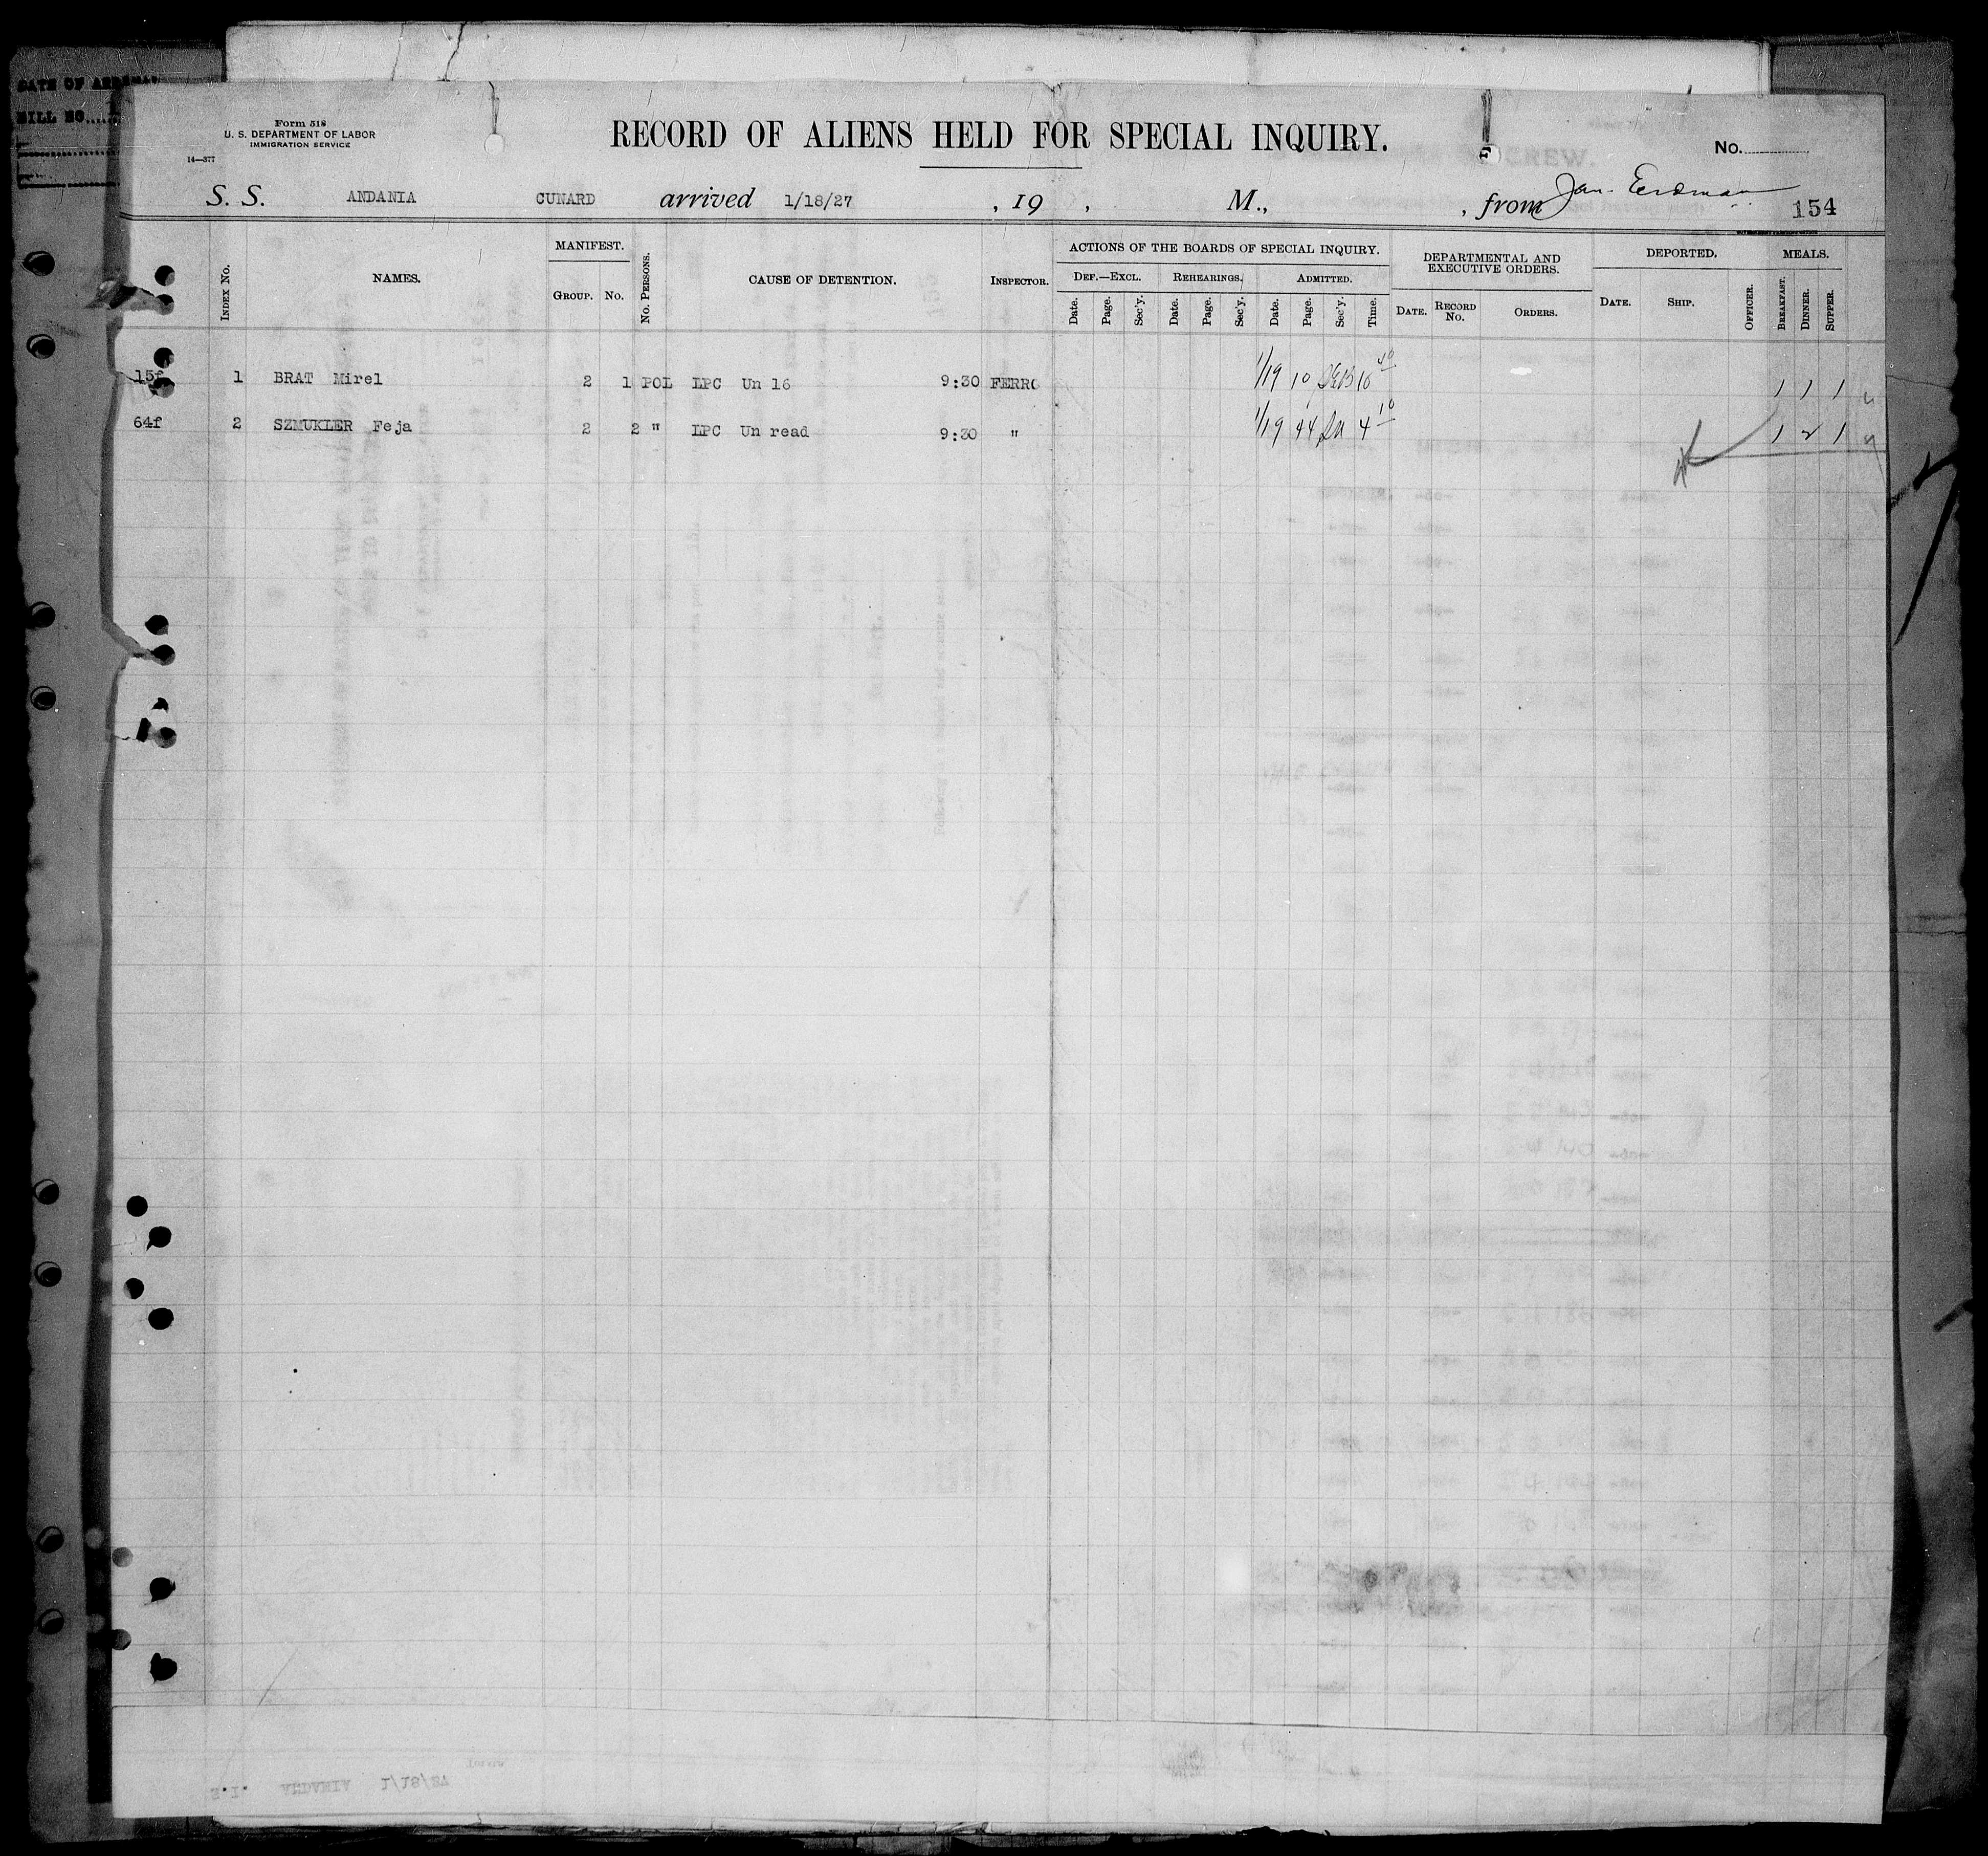 DATE OF
BILL NO.
Form 518
U. S. DEPARTMENT OF LABOR
IMMIGRATION SERVICE
14—377
RECORD OF ALIENS HELD FOR SPECIAL INQUIRY.
No.
S. S. ANDANIA CUNARD arrived 1/18/27 , 19 , M., , from Jan. Eerdman
154
INDEX No. NAMES. MANIFEST. GROUP. No. No. PERSONS. CAUSE OF DETENTION. INSPECTOR.
ACTIONS OF THE BOARDS OF SPECIAL INQUIRY.
DEF.—EXCL. REHEARINGS. ADMITTED.
Date. Page. Sec'y. Date. Page. Sec'y. Date. Page. Sec'y. Time.
DEPARTMENTAL AND
EXECUTIVE ORDERS.
DATE. RECORD No. ORDERS.
DEPORTED.
DATE. SHIP. OFFICER.
MEALS.
BREAKFAST. DINNER. SUPPER.
15f 1 BRAT Mirel 2 1 POL LPC Un 16 9:30 FERRO 1/19 10 10 40 1 1 1
64f 2 SZMUKLER Feja 2 2 " LPC Un read 9:30 " 1/19 44 4 10 1 2 1